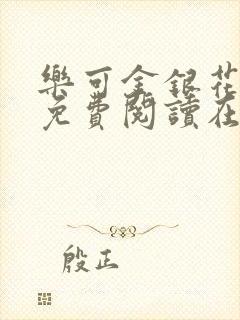 樂可金銀花
免費閱讀在
殷正